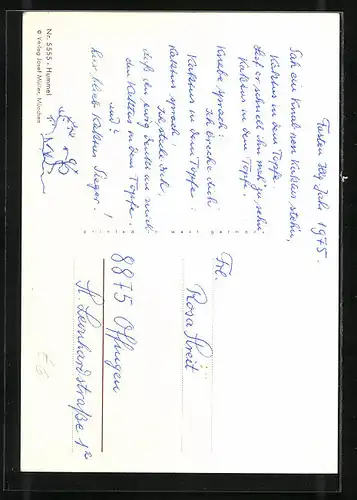 Juli 1975.
Sah ein Knab nen Kaktus stehn,
Kaktus in dem Topfe.
Lief er schnell ihn nah zu sehn
Kaktus in dem Topfe.
Knabe sprach:
Ich breche dich
Kaktus in dem Topfe!
Kaktus sprach:
Ich steche dich,
daß du ewig denkst an mich
den Kaktus in dem Topfe.
und?
Kaktus Sieger!
Nr. 5555 - Hummel
© Verlag Josef Müller, München
Frl.
Rosa Streit
8875 Offingen
St. Leonhardstraße 1a